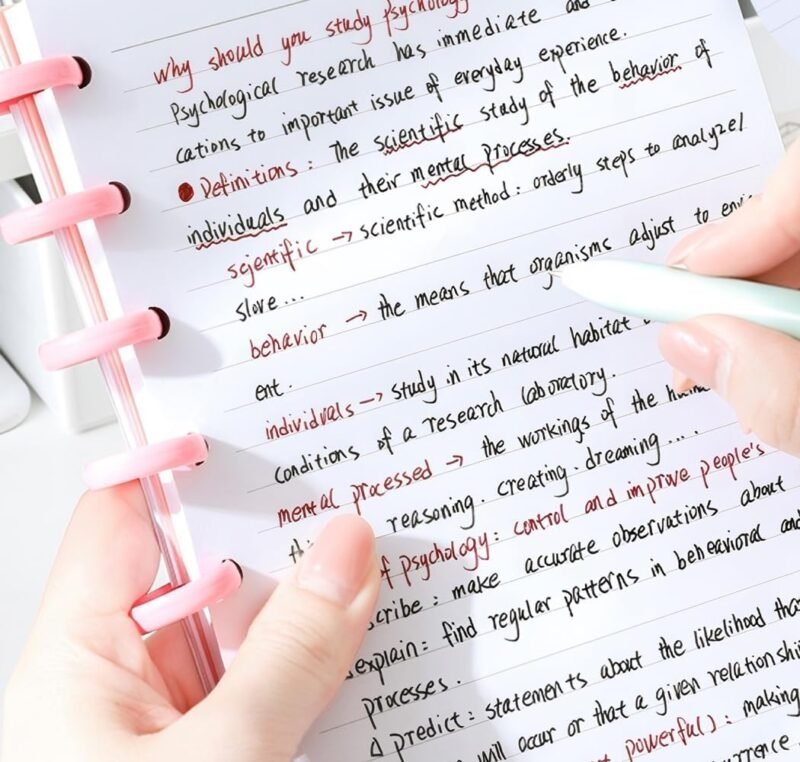 why should you study psychology
Psychological research has immediate and
cations to important issue of everyday experience.
Definitions : The scientific study of the behavior of
individuals and their mental processes.
scientific → scientific method : orderly steps to analyze/
slove ...
behavior → the means that organisms adjust to
ent .
individvals → study in its natural habitat
conditions of a research laboratory.
mental processed → the workings of the
reasoning . creating . dreaming ....
psychology : control and improve people's
scribe : make accurate observations about
explain : find regular patterns in beheavioral and
processes .
Δ predict : statements about the likelihood
will occur or that a given
powerful) : making